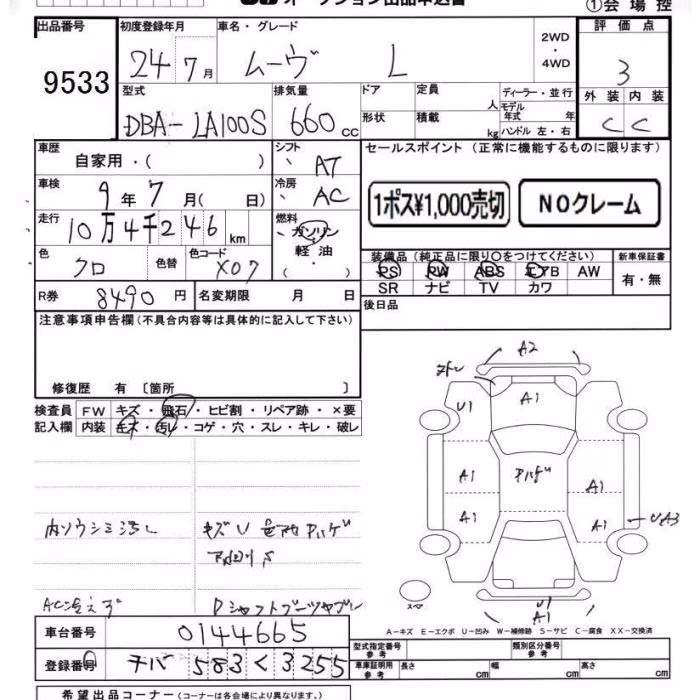 オークション出品申込書
①会場控
出品番号
9533
初度登録年月
24 7月
車名・グレード
ムーヴ L
2WD
・
4WD
評価点
3
型式
DBA-LA100S
排気量
660cc
ドア
形状
定員
人
積載
kg
ディーラー・並行
モデル
年式 年
ハンドル 左・右
外装 内装
C C
車歴
自家用・( )
シフト
AT
セールスポイント (正常に機能するものに限ります)
車検
9年7月( 日)
冷房
AC
1ポス¥1,000売切
NOクレーム
走行
10万4千246km
燃料
ガソリン
軽油
( ・ )
色
クロ
色替
色コード
X07
装備品 (純正品に限り○をつけてください)
新車保証書
PS PW ABS エアB AW
SR ナビ TV カワ
有・無
R券 8490円
名変期限 月 日
後日品
注意事項申告欄 (不具合内容等は具体的に記入して下さい)
修復歴 有 〔箇所 〕
検査員
記入欄
FW キズ・飛石・ヒビ割・リペア跡・×要
内装 キズ・汚レ・コゲ・穴・スレ・キレ・破レ
A2
U1
A1
A1
A1
ハゲ
A1
A1
UA3
U1
A1
スペア
AC冷えず
Dシャフトブーツヤブレ
A-キズ E-エクボ U-凹み W-補修跡 S-サビ C-腐食 XX-交換済
車台番号
0144665
登録番号
チバ 583 く 3255
型式指定番号
参考
類別区分番号
参考
車庫証明用
参考
長さ cm
幅 cm
高さ cm
希望出品コーナー (コーナーは各会場により異なります。)